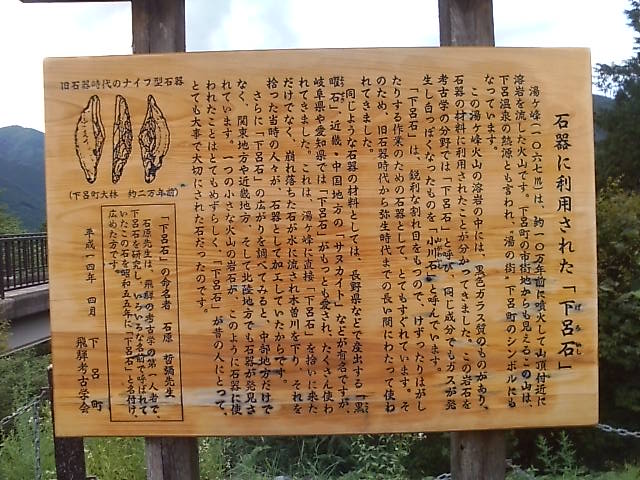 石器に利用された「下呂石」
げろいし
湯ケ峰(一、〇六七m)は、約一〇万年前に噴火して山頂付近に
溶岩を流した火山です。下呂町の市街地からも見えるこの山は、
下呂温泉の熱源とも言われ、“湯の街”下呂町のシンボルにも
なっています。
この湯ケ峰火山の溶岩の中には、黒色ガラス質のものがあり、
石器の材料に利用されたことが分かってきました。この岩石を
考古学の分野では「下呂石」と呼び、同じ成分でもガスが発
生し白っぽくなったものを「小川石」と呼んでいます。
「下呂石」は、鋭利な割れ目をもつので、けずったりはがし
たりする作業のための石器として、とてもすぐれています。そ
のため、旧石器時代から弥生時代までの長い間にわたって使わ
れてきました。
同じような石器の材料としては、長野県などで産出する「黒
曜石」、近畿・中国地方の「サヌカイト」などが有名ですが、
岐阜県や愛知県では「下呂石」がもっとも愛され、たくさん使わ
れてきました。これは、湯ケ峰に直接「下呂石」を拾いに来た
だけでなく、崩れ落ちた石が水に流され木曽川を下り、それを
拾った当時の人々が、石器として加工していたからです。
さらに「下呂石」の広がりを調べてみると、中部地方だけで
なく、関東地方や近畿地方、そして北陸地方でも石器が発見さ
れています。一つの小さな火山の岩石が、このように石器に使
われたことはとてもめずらしく、「下呂石」が昔の人にとって、
とても大事で大切にされた石だったのです。
旧石器時代のナイフ型石器
(下呂町大林 約二万年前)
「下呂石」の命名者 石原 哲彌先生
石原先生は、飛騨の考古学の第一人者で、
下呂石を研究し、いろいろな名前で呼ばれて
いたこの石を昭和五五年に「下呂石」と名付け、
広めた方です。
平成一四年 四月
下呂町
飛騨考古学会